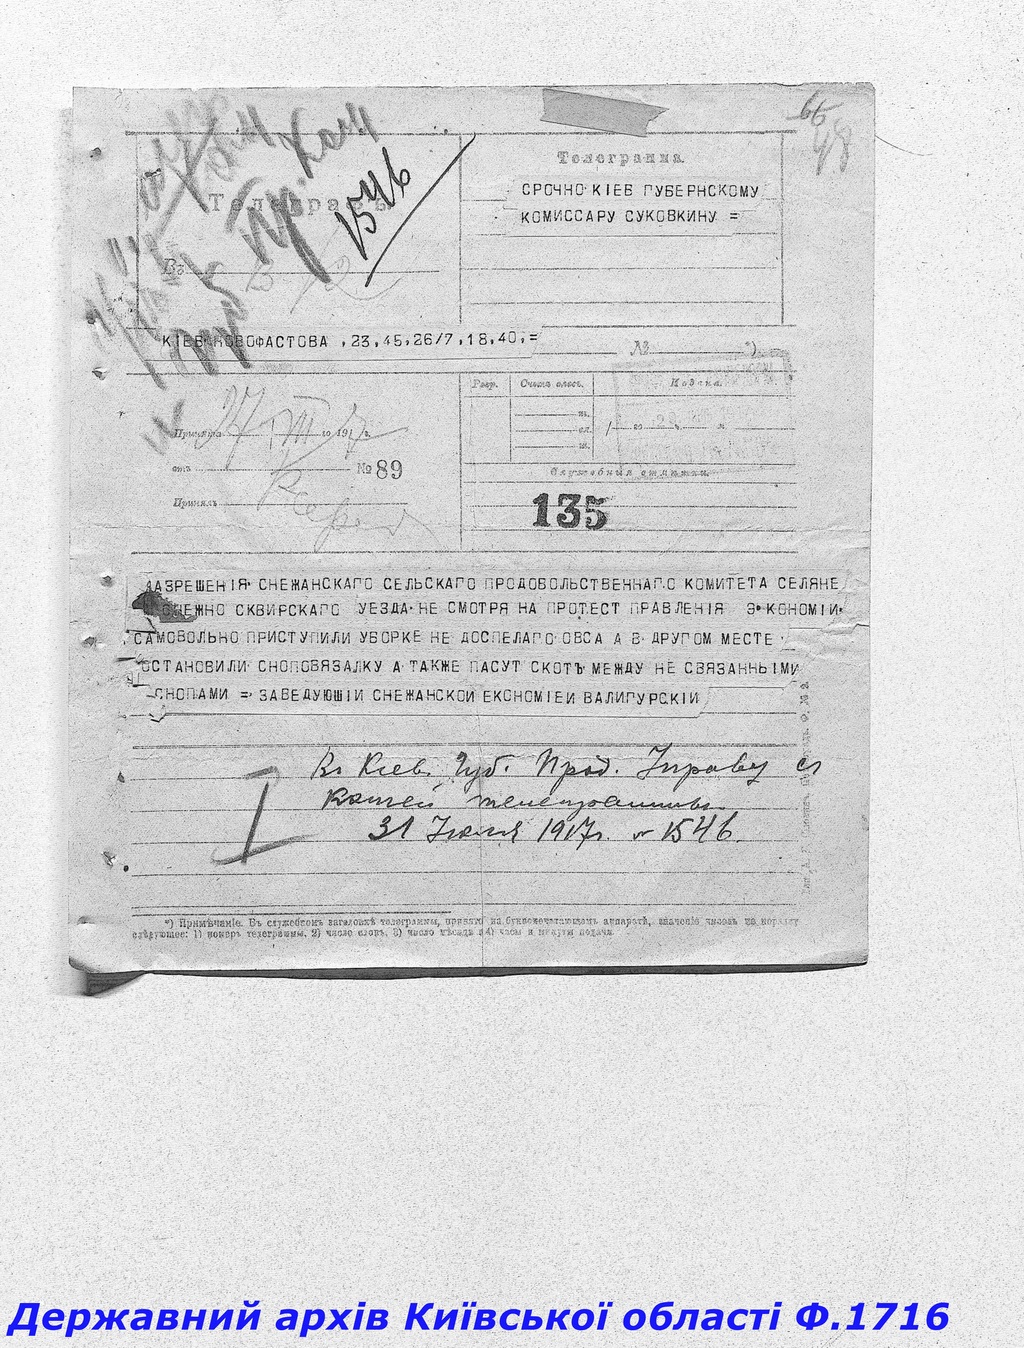 66
48
Телеграфъ
Въ
1546
Телеграмма.
СРОЧНО КІЕВ ГУБЕРНСКОМУ
КОМИССАРУ СУКОВКИНУ =
КІЕВ НОВОФАСТОВА ,23,45,26/7,18,40,=
№ *)
Принята 27 VII го 1917 г.
отъ № 89
Принялъ
Разр. Счетъ словъ. Подана.
пл.
сл.
го ч. м
Служебныя отмѣтки.
135
РАЗРЕШЕНІЯ СНЕЖАНСКАГО СЕЛЬСКАГО ПРОДОВОЛЬСТВЕННАГО КОМИТЕТА СЕЛЯНЕ
СНЕЖНО СКВИРСКАГО УЕЗДА НЕ СМОТРЯ НА ПРОТЕСТ ПРАВЛЕНІЯ ЭКОНОМІИ
САМОВОЛЬНО ПРИСТУПИЛИ УБОРКЕ НЕ ДОСПЕЛАГО ОВСА А В ДРУГОМ МЕСТЕ
ОСТАНОВИЛИ СНОПОВЯЗАЛКУ А ТАКЖЕ ПАСУТ СКОТЬ МЕЖДУ НЕ СВЯЗАННЫМИ
СНОПАМИ = ЗАВЕДУЮШІИ СНЕЖАНСКОИ ЕКОНОМІЕИ ВАЛИГУРСКІИ
Въ Кіев. Губ. Прод. Управу съ
копіей телеграммы
31 Іюля 1917г. № 1546.
*) Примѣчаніе. Въ служебномъ заголовкѣ телеграммы, принятой на буквопечатающемъ аппаратѣ, значеніе чиселъ по порядку
слѣдующее: 1) номеръ телеграммы, 2) число словъ, 3) число мѣсяца и 4) часы и минуты подачи.
Державний архів Київської області Ф.1716